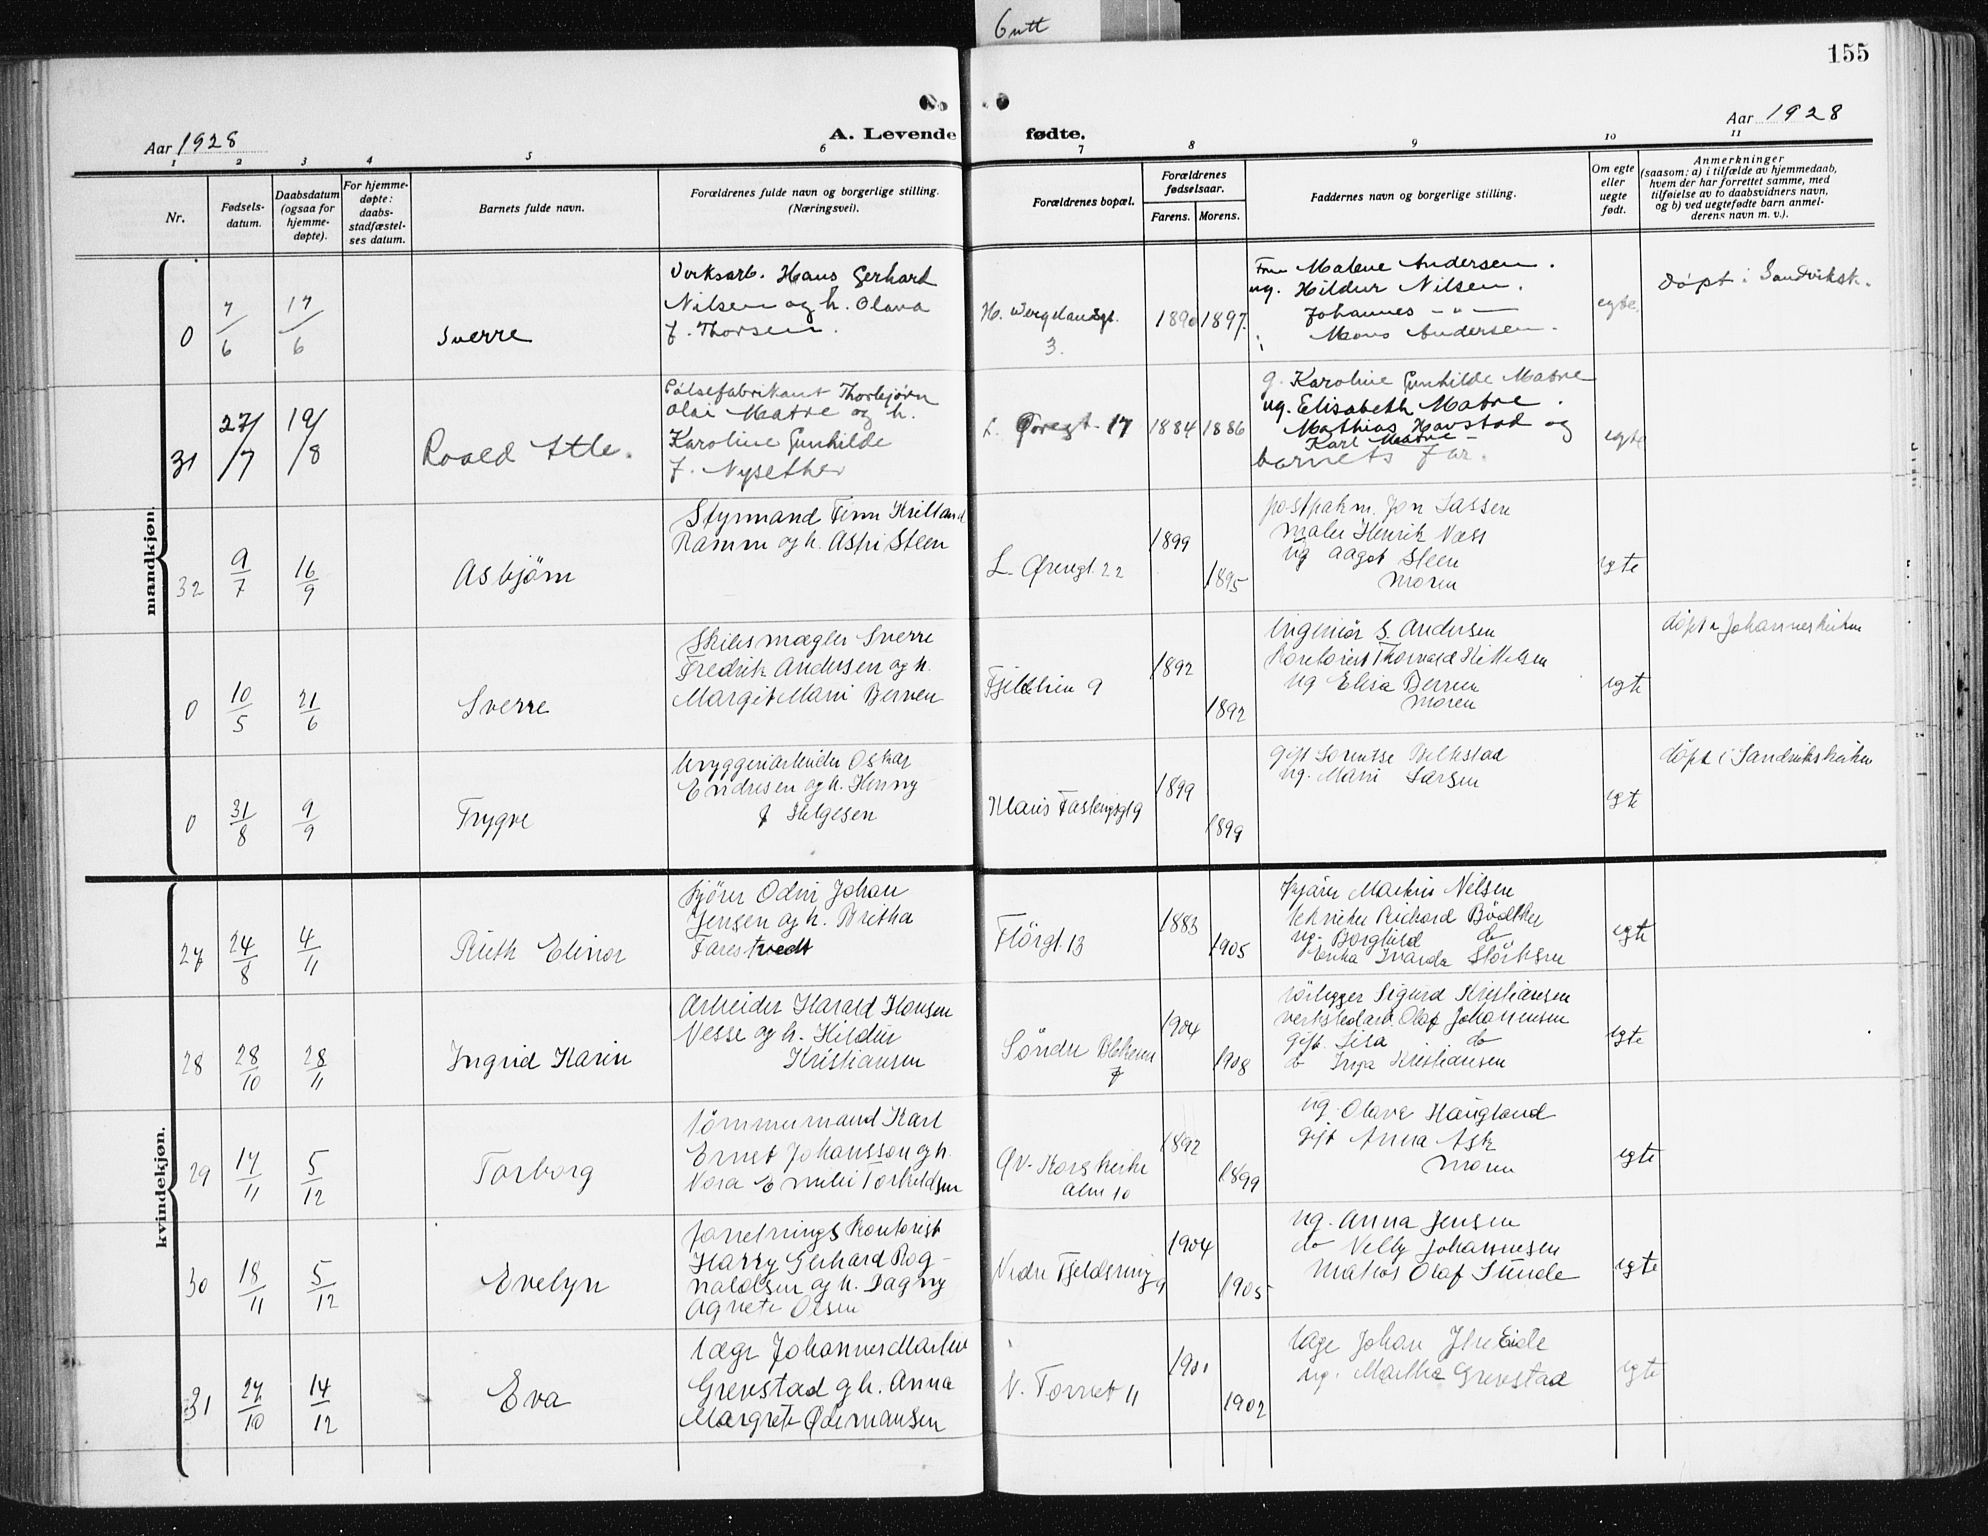 Gutt
155
Aar 1928
A. Levende fødte.
Aar 1928
1 2 3 4 5 6 7 8 9 10 11
Nr.
Fødsels-
datum.
Daabsdatum
(ogsaa for
hjemme-
døpte).
For hjemme-
døpte:
daabs-
stadfæstel-
ses datum.
Barnets fulde navn.
Forældrenes fulde navn og borgerlige stilling.
(Næringsvei).
Forældrenes bopæl.
Forældrenes
fødselsaar.
Farens. Morens.
Faddernes navn og borgerlige stilling.
Om egte
eller
uegte
født.
Anmerkninger
(saasom: a) i tilfælde av hjemmedaab,
hvem der har forrettet samme, med
tilføielse av to daabsvidners navn,
og b) ved uegtefødte barn anmel-
derens navn m. v.).
mandkjøn.
0
7/6
17/6
Sverre
Verksarb. Hans Gerhard
Nilsen og h. Olava
f. Thorsen.
H. Wergelandsgt.
3.
1890 1897.
Fru Malene Andersen.
ug. Hildur Nilsen.
Johannes - " -
Mons Andersen.
egte
Døpt i Sandviksk.
31
27/7
19/8
Roald Atle.
Pølsefabrikant Thorbjørn
Olai Matre og h.
Karoline Gunhilde
f. Nysether
L. Øvregt. 17
1884 1886
g. Karoline Gunhilde Matre
ug. Elisabeth Matre.
Mathias Havstad og
Karl Matre -
barnets far.
egte
32
9/7
16/9
Asbjørn
Styrmand Finn Krilland
Ramm og h. Aspi Steen
L. Øvregt. 22
1899
1895
postpakm. Jon Lassen
maler Henrik Næss
ug Aagot Steen
moren
egte
0
10/5
21/6
Sverre
Skibsmægler Sverre
Fredrik Andersen og h.
Margit Marie Berven
Fjeldlien 9
1892
1892
Ingeniør S. Andersen
Kontorist Thorvald Kittelsen
ug Elisa Berven
moren
egte
døpt i Johanneskirken
0
31/8
9/9
Trygve
bryggeriarbeider Oskar
Endresen og h. Henny
f Helgesen
Klaus Fastingsgt 9
1899
1899
gift Lorentse
ug. Marie Larsen
egte
døpt i Sandvikskirken
kvindekjøn.
27
24/8
4/11
Ruth Elinor
kjører Odin Johan
Jensen og h. Britha
Farestvedt
Flörgt. 13
1883
1905
kjører Markus Nilsen
tekniker Richard Bödtker
ug. Borghild do
Erika Ivarda Störksen
egte
28
28/10
28/11
Ingrid Karin
Arbeider Harald Hansen
Nesse og h. Hildur
Kristiansen
Söndre Blekeven
7
1904
1908
rörlegger Sigurd Kristiansen
verkstedarb. Olaf Johannesen
gift. Lisa do
do Inga Kristiansen
egte
29
17/11
5/12
Torborg
tømmermand Karl
Ernst Johansson og h.
Nora Emilie Torkildsen
Øv. Korskirke
alm 10
1892
1899
ug. Olave Haugland
gift Anna Ask
moren
egte
30
18/11
5/12
Evelyn
forretnings kontorist
Harry Gerhard Rog-
naldsen og h. Dagny
Agnete Olsen
Nedre Fjeldsmug
9
1904
1905
ug. Anna Jensen
do Nelly Johannesen
Olaf Sunde
egte
31
27/10
14/12
Eva
læge Johannes Martin
Grevstad og h. Anna
Margrete Ødemansen
N. Tornet 11
1901
1902
læge Johan Eide
ug. Martha Grevstad
egte